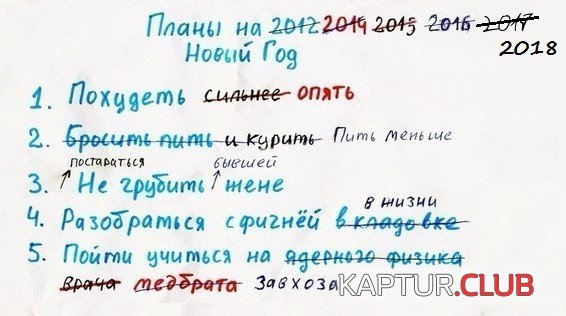 Планы на 2012 2014 2015 2016 2017
Новый Год 2018
1. Похудеть сильнее опять
2. Бросить пить и курить Пить меньше
постараться бывшей
3. Не грубить жене
в жизни
4. Разобраться с фигнёй в кладовке
5. Пойти учиться на ядерного физика
врача медбрата Завхоза
KAPTUR.CLUB